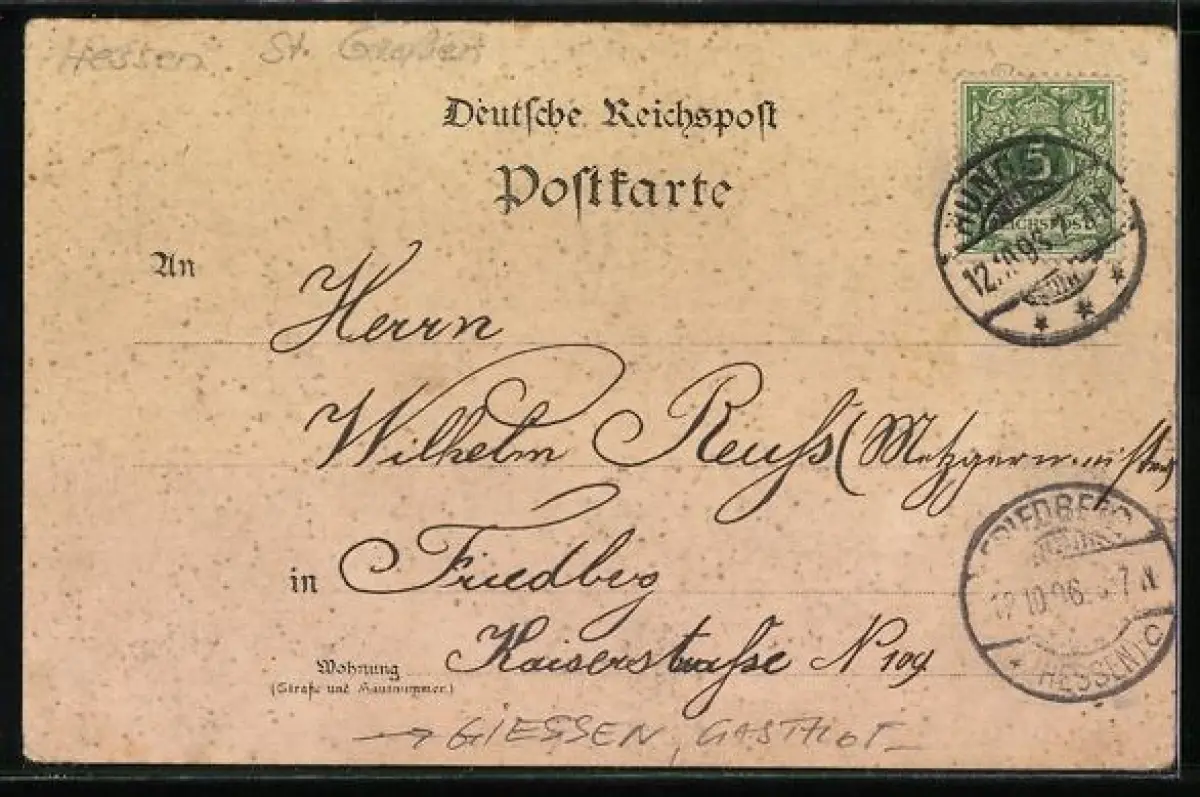 Hessen St. Gießen
Deutsche Reichspost
Postkarte
5
REICHSPOST
HUNGEN
12.10.96
An
Herrn
Wilhelm Reuss (Metzgermeister
in Friedberg
FRIEDBERG
12.10.96. 6-7 N
HESSEN) C
Kaiserstrasse N 109
Wohnung
(Straße und Hausnummer.)
→ GIESSEN, GASTHOF